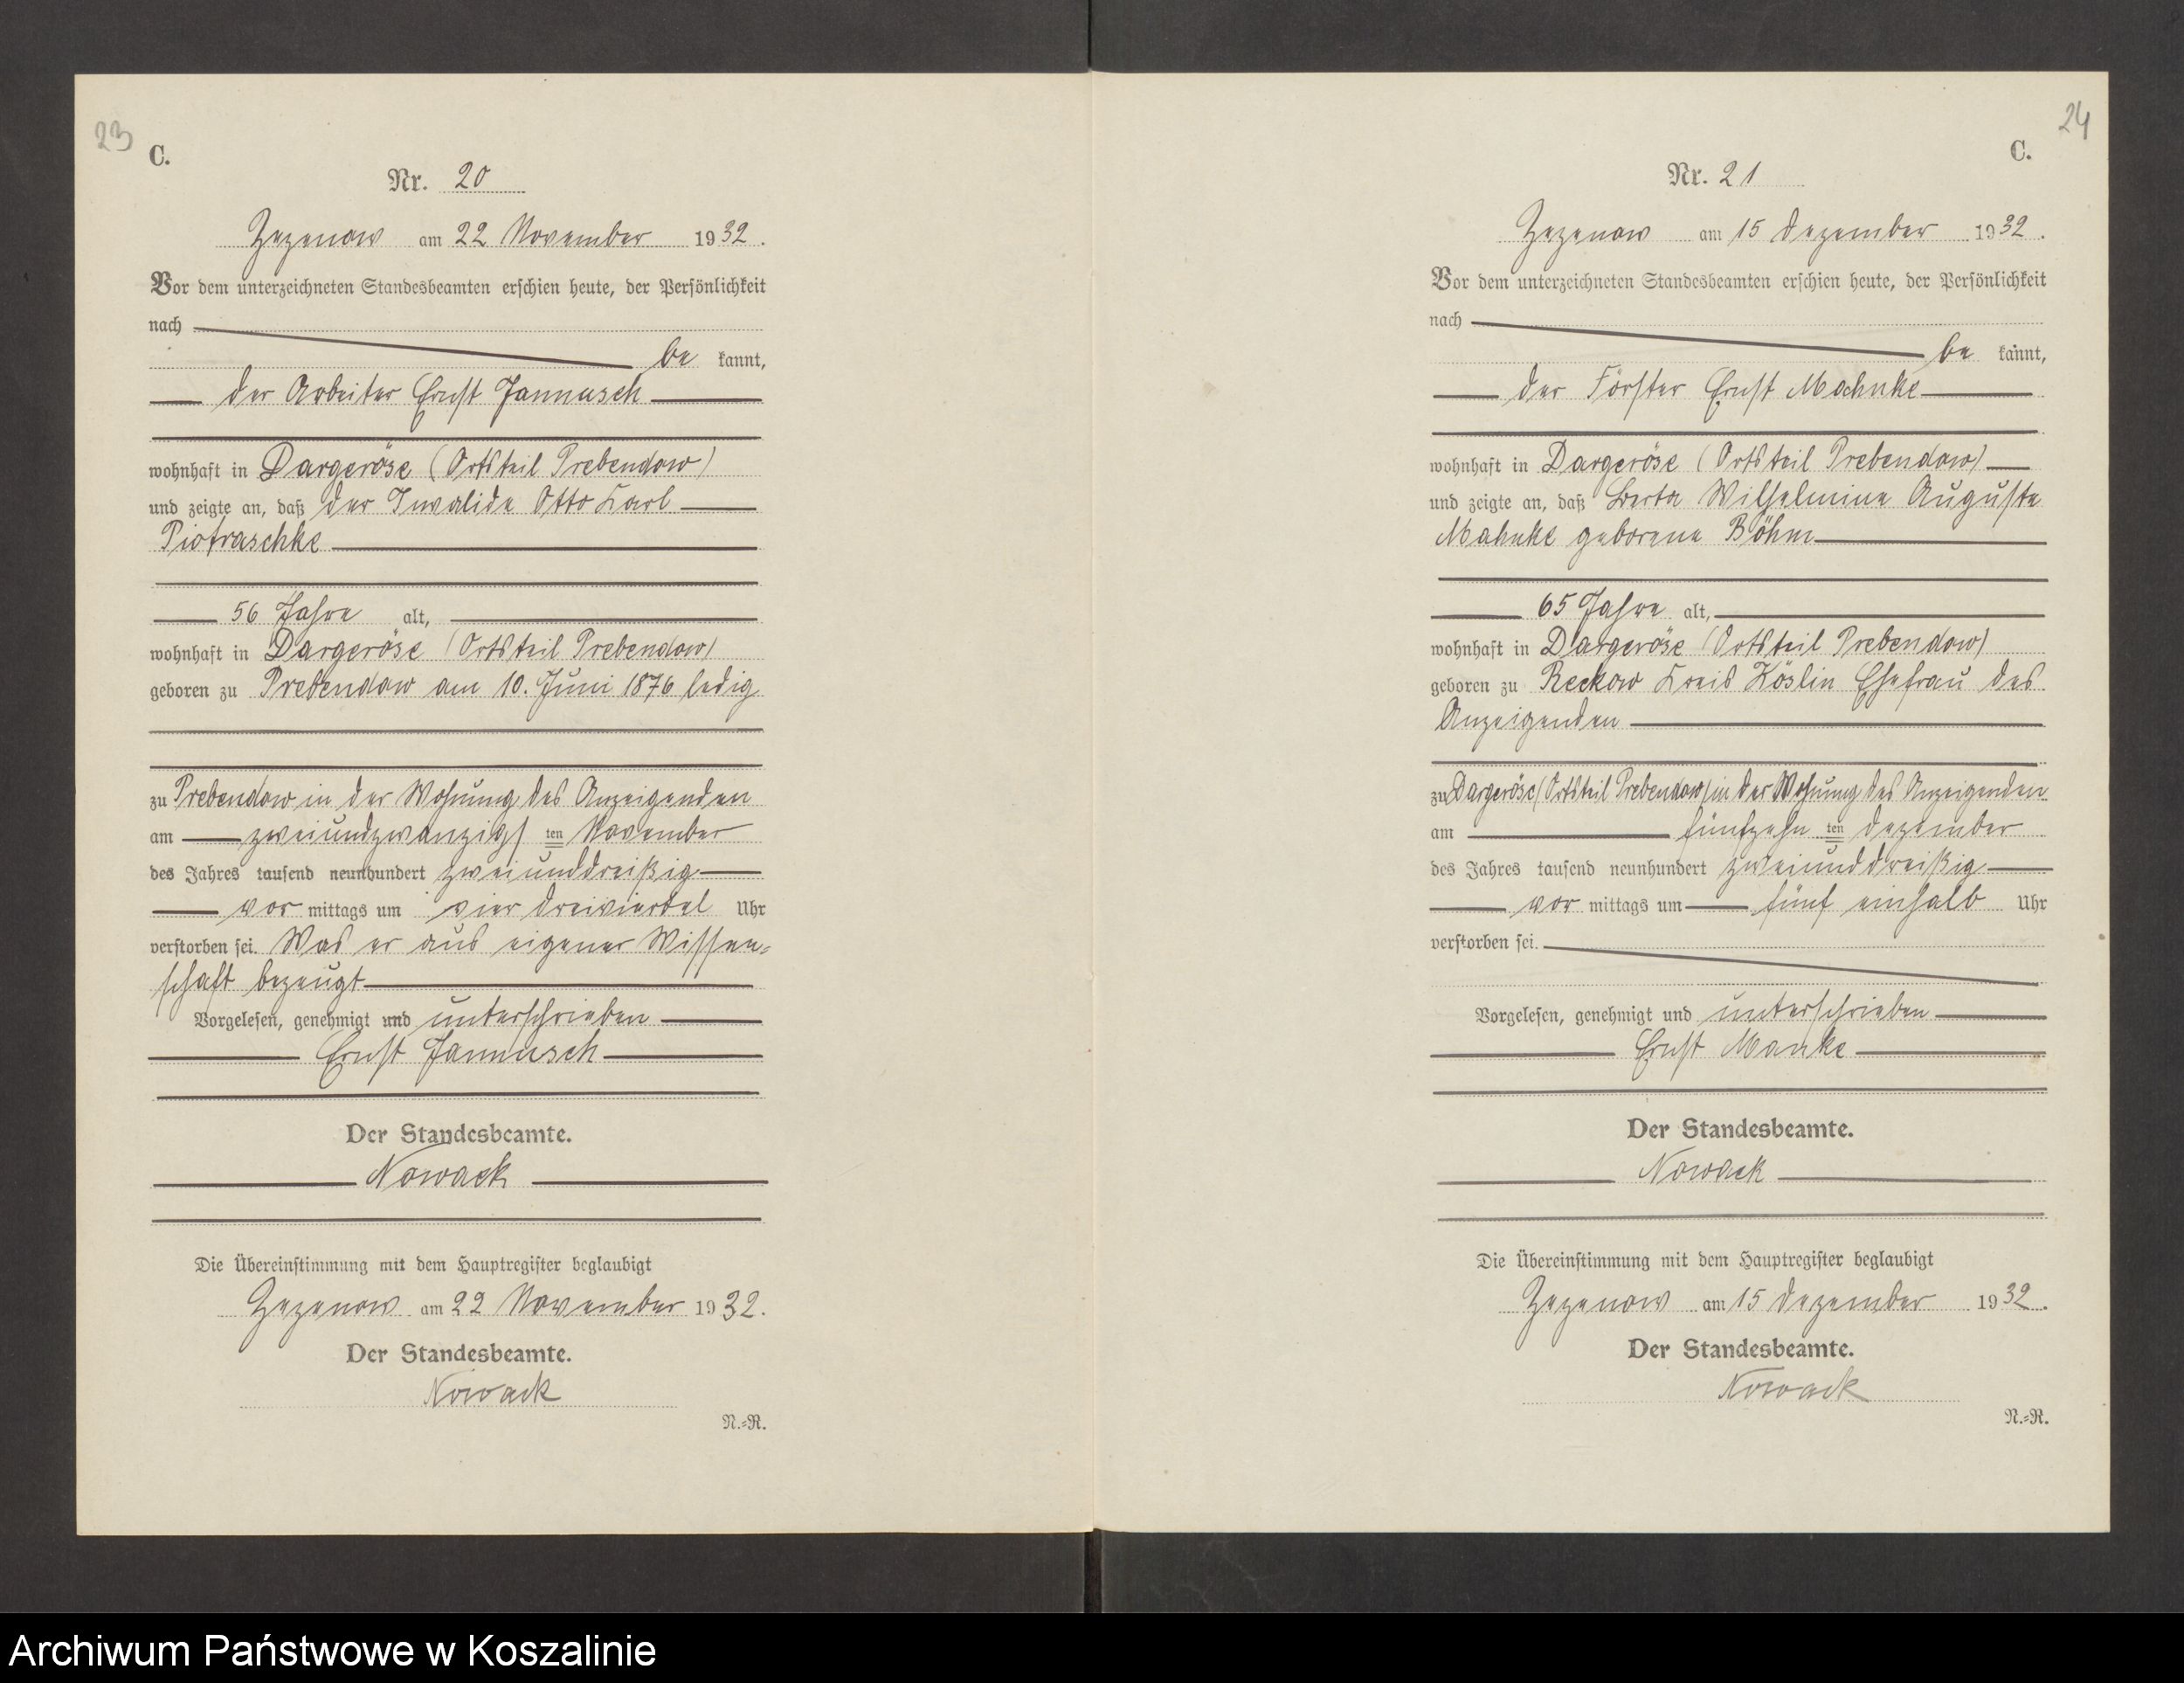 23
C.
Nr. 20
Zezenow am 22 November 1932.
Vor dem unterzeichneten Standesbeamten erschien heute, der Persönlichkeit
nach
be kannt,
der Arbeiter Ernst Jannusch
wohnhaft in Dargeröse (Ortsteil Prebendow)
und zeigte an, daß der Invalide Otto Karl
Piotraschke
56 Jahre alt,
wohnhaft in Dargeröse (Ortsteil Prebendow)
geboren zu Prebendow am 10. Juni 1876 ledig
zu Prebendow in der Wohnung des Anzeigenden
am zweiundzwanzigs ten November
des Jahres tausend neunhundert zweiunddreißig
vor mittags um vier dreiviertel Uhr
verstorben sei. Was er aus eigener Wissen=
schaft bezeugt
Vorgelesen, genehmigt und unterschrieben
Ernst Jannusch
Der Standesbeamte.
Nowack
Die Übereinstimmung mit dem Hauptregister beglaubigt
Zezenow am 22 November 1932.
Der Standesbeamte.
Nowack
N.=R.
24
C.
Nr. 21
Zezenow am 15 Dezember 1932.
Vor dem unterzeichneten Standesbeamten erschien heute, der Persönlichkeit
nach
be kannt,
der Förster Ernst Mahnke
wohnhaft in Dargeröse (Ortsteil Prebendow)
und zeigte an, daß Berta Wilhelmine Auguste
Mahnke geborene Böhm
65 Jahre alt,
wohnhaft in Dargeröse (Ortsteil Prebendow)
geboren zu Reckow Kreis Köslin Ehefrau des
Anzeigenden
zu Dargeröse (Ortsteil Prebendow) in der Wohnung des Anzeigenden
am fünfzehn ten Dezember
des Jahres tausend neunhundert zweiunddreißig
vor mittags um fünf einhalb Uhr
verstorben sei.
Vorgelesen, genehmigt und unterschrieben
Ernst Manke
Der Standesbeamte.
Nowack
Die Übereinstimmung mit dem Hauptregister beglaubigt
Zezenow am 15 Dezember 1932.
Der Standesbeamte.
Nowack
N.=R.
Archiwum Państwowe w Koszalinie